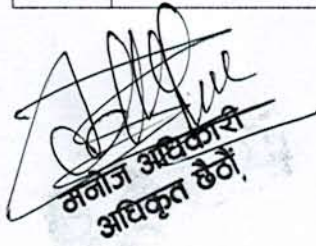 मनोज अधिकारी
अधिकृत छैठौं,